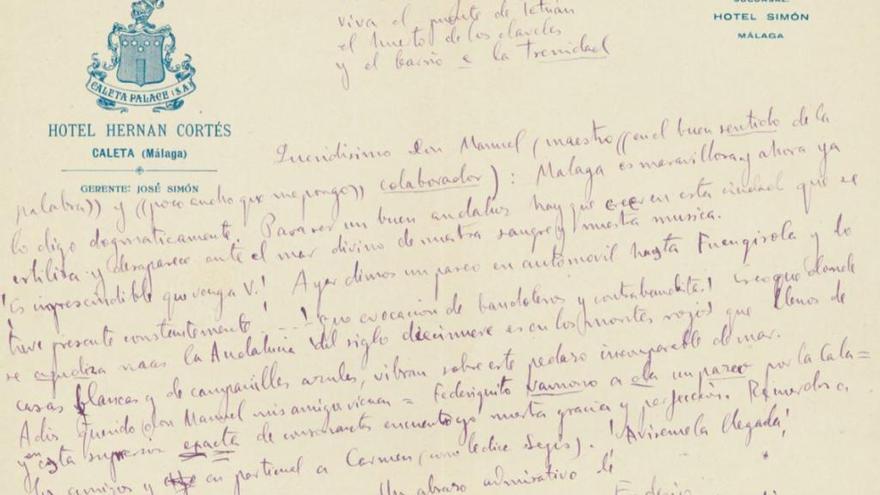 SUCURSAL:
HOTEL SIMÓN
MÁLAGA
viva el puente de Tetuán
el huerto de los claveles
y el barrio e la trenidad
CALETA PALACE (S.A.)
HOTEL HERNAN CORTÉS
CALETA (Málaga)
GERENTE: JOSÉ SIMÓN
Queridisimo Don Manuel (maestro ((en el buen sentido de la
palabra)) y ((poco ancho que me pongo)) colaborador): Malaga es maravillosa y ahora ya
lo digo dogmaticamente. Para ser un buen andaluz hay que creer en esta ciudad que se
estiliza y desaparece ante el mar divino de nuestra sangre y nuestra musica.
¡Es inprescindible que venga V.! Ayer dimos un paseo en automovil hasta Fuengirola y lo
tuve presente constentemente! evocación de bandoleros y contrabandista! Creo que donde
se agudiza mas la Andalucia del siglo diecinueve es en los montes rojos que llenos de
casas blancas y de campanilles azules, vibran sobre este pedazo incomparable de mar.
Adis querido Don Manuel mis amigos vienen = Federiquito vamono a da un paseo por la Cala=
y en esta supresion exacta de consonantes encuentro yo nuestra gracia y perfección. Recuerdos a
los amigos y en particual a Carmen (uno le dice Segis). ¡Avisemela llegada!
Un abrazo admirativo de
Federico